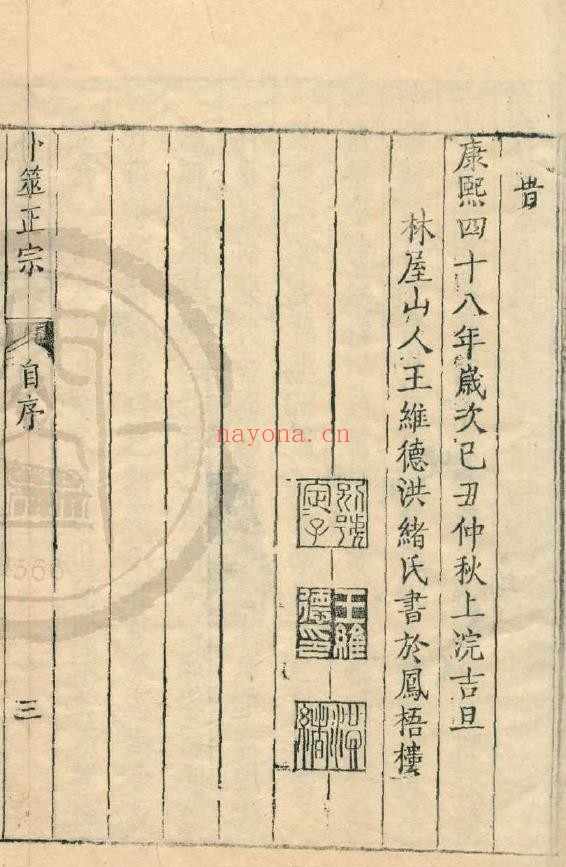 昔
康熙四十八年嵗次己丑仲秋上浣吉旦
林屋山人王維德洪緒氏書於鳳梧樓
別號
定子
王維
德印
洪
緒
卜筮正宗
自序
三
nayona.cn
1566